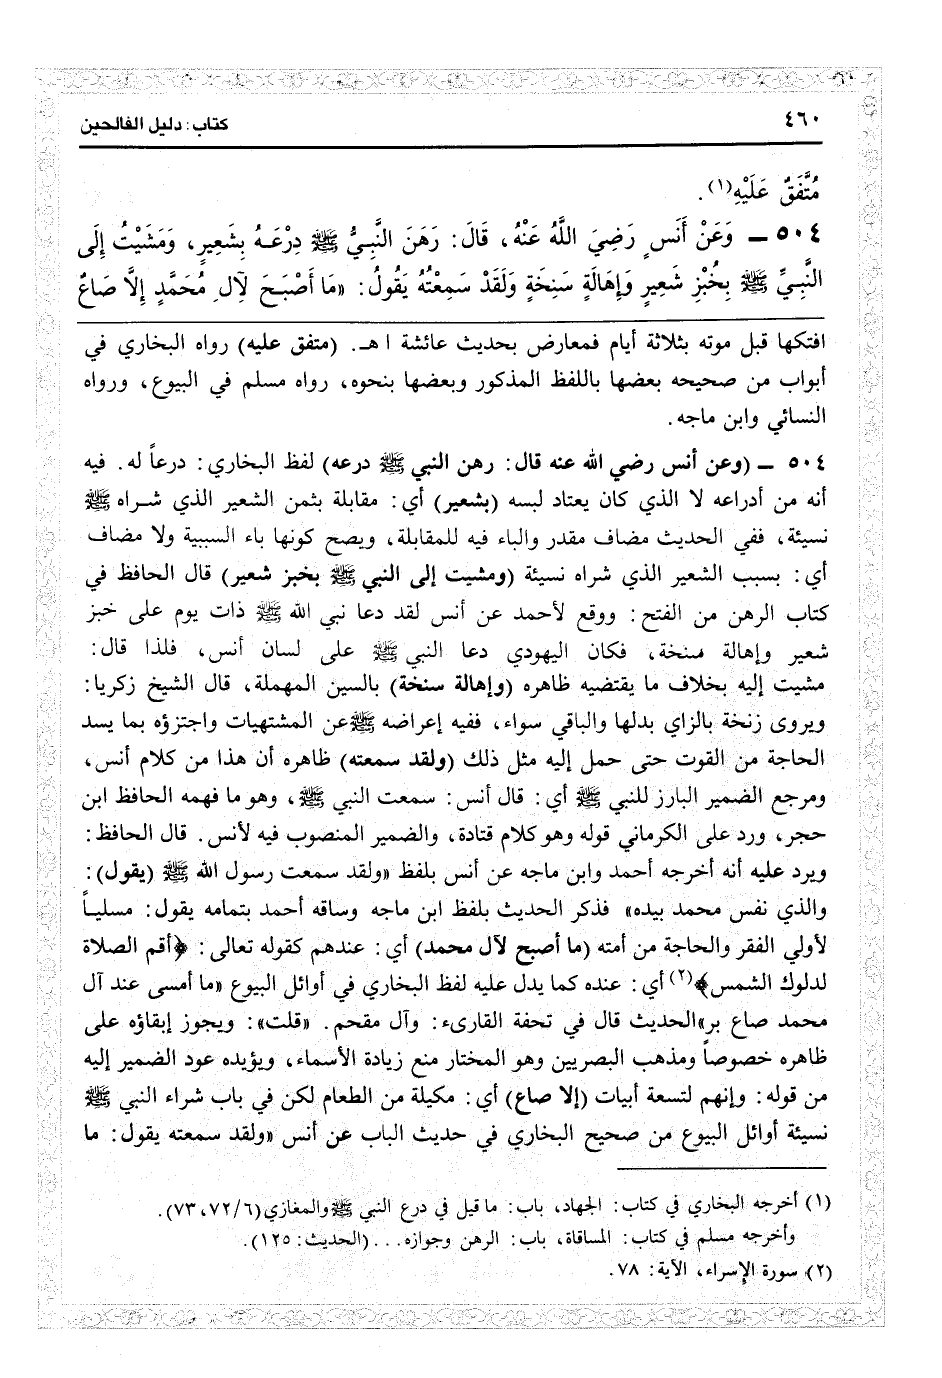 ٤٦٠
كتاب: دليل الفالحين
مُتَّفَقٌ عَلَيْهِ(١).
٥٠٤ ـ وَعَنْ أَنَسٍ رَضِيَ اللَّهُ عَنْهُ، قَالَ: رَهَنَ النَّبِيُّ ﷺ دِرْعَهُ بِشَعِيرٍ، وَمَشَيْتُ إِلَى
النَّبِيِّ ﷺ بِخُبْزِ شَعِيرٍ وَإِهَالَةٍ سَنِخَةٍ وَلَقَدْ سَمِعْتُهُ يَقُولُ: «مَا أَصْبَحَ لِآلِ مُحَمَّدٍ إِلَّا صَاعٌ
افتكها قبل موته بثلاثة أيام فمعارض بحديث عائشة ا هـ. (متفق عليه) رواه البخاري في
أبواب من صحيحه بعضها باللفظ المذكور وبعضها بنحوه، رواه مسلم في البيوع، ورواه
النسائي وابن ماجه.
٥٠٤ ـ (وعن أنس رضي الله عنه قال: رهن النبي ﷺ درعه) لفظ البخاري: درعاً له. فيه
أنه من أدراعه لا الذي كان يعتاد لبسه (بشعير) أي: مقابلة بثمن الشعير الذي شراه ﷺ
نسيئة، ففي الحديث مضاف مقدر والباء فيه للمقابلة، ويصح كونها باء السببية ولا مضاف
أي: بسبب الشعير الذي شراه نسيئة (ومشيت إلى النبي ﷺ بخبز شعير) قال الحافظ في
كتاب الرهن من الفتح: ووقع لأحمد عن أنس لقد دعا نبي الله ﷺ ذات يوم على خبز
شعير وإهالة منخة، فكان اليهودي دعا النبي ﷺ على لسان أنس، فلذا قال:
مشيت إليه بخلاف ما يقتضيه ظاهره (وإهالة سنخة) بالسين المهملة، قال الشيخ زكريا:
ويروى زنخة بالزاي بدلها والباقي سواء، ففيه إعراضه ﷺعن المشتهيات واجتزؤه بما يسد
الحاجة من القوت حتى حمل إليه مثل ذلك (ولقد سمعته) ظاهره أن هذا من كلام أنس،
ومرجع الضمير البارز للنبي ﷺ أي: قال أنس: سمعت النبي ﷺ، وهو ما فهمه الحافظ ابن
حجر، ورد على الكرماني قوله وهو كلام قتادة، والضمير المنصوب فيه لأنس. قال الحافظ:
ويرد عليه أنه أخرجه أحمد وابن ماجه عن أنس بلفظ «ولقد سمعت رسول الله ﷺ (يقول):
والذي نفس محمد بيده» فذكر الحديث بلفظ ابن ماجه وساقه أحمد بتمامه يقول: مسلياً
لأولي الفقر والحاجة من أمته (ما أصبح لآل محمد) أي: عندهم كقوله تعالى: ﴿أقم الصلاة
لدلوك الشمس﴾(٢) أي: عنده كما يدل عليه لفظ البخاري في أوائل البيوع «ما أمسى عند آل
محمد صاع بر»الحديث قال في تحفة القارىء: وآل مقحم. «قلت»: ويجوز إبقاؤه على
ظاهره خصوصاً ومذهب البصريين وهو المختار منع زيادة الأسماء، ويؤيده عود الضمير إليه
من قوله: وإنهم لتسعة أبيات (إلا صاع) أي: مكيلة من الطعام لكن في باب شراء النبي ﷺ
نسيئة أوائل البيوع من صحيح البخاري في حديث الباب عن أنس «ولقد سمعته يقول: ما
(١) أخرجه البخاري في كتاب: الجهاد، باب: ما قيل في درع النبي ﷺوالمغازي(٧٣،٧٢/٦).
وأخرجه مسلم في كتاب: المساقاة، باب: الرهن وجوازه... (الحديث: ١٢٥).
(٢) سورة الإسراء، الآية: ٧٨.